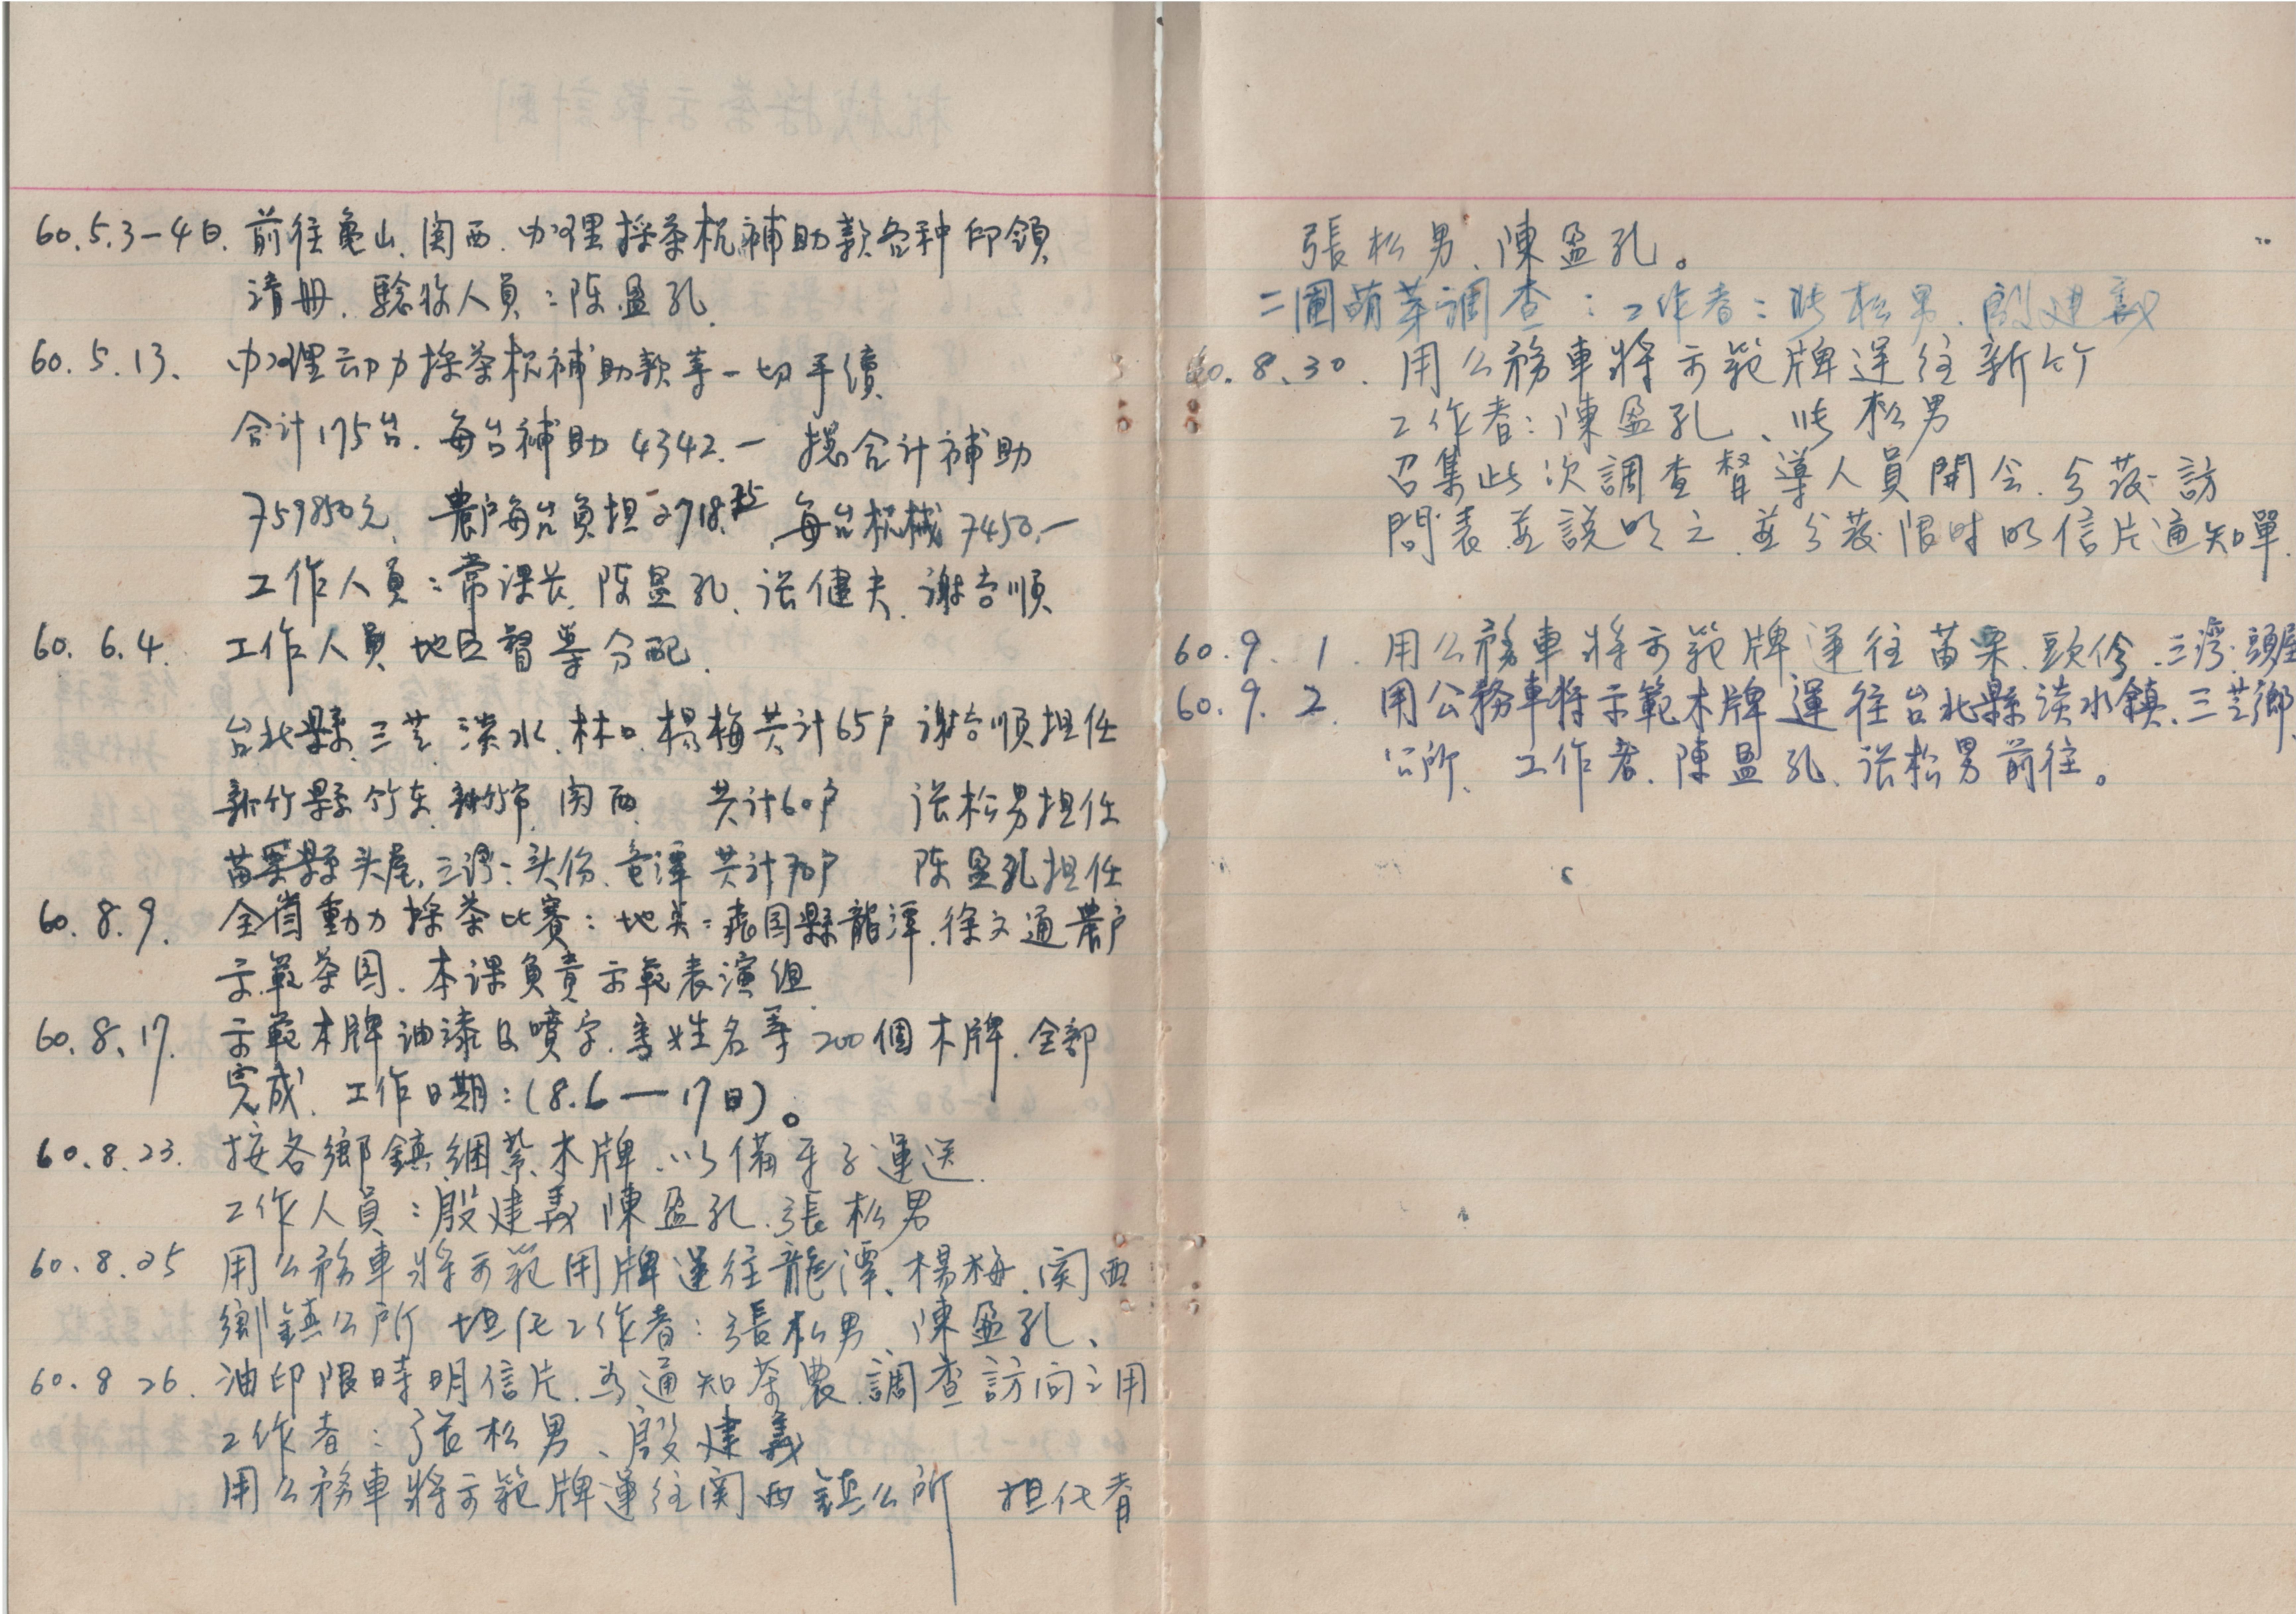 60.5.3-4日. 前往龟山、関西.办理採茶机補助款各种印領
清册. 驗收人員:陈盈孔.
60.5.13. 办理动力採茶机補助款等一切手續
合计175台. 每台補助4342.- 總合计補助
759850元. 農户每台負担2718.75. 每台机械7450.-
工作人員:常课长. 陈盈孔、张健夫. 謝吉順.
60. 6.4. 工作人員地区督导分配.
台北縣、三芝、淡水、林口. 楊梅共计65户 謝吉順担任
新竹縣竹东.新竹市.関西. 共计60户 张松男担任
苗栗縣头屋.三湾.头份.竜潭 共计70户 陈盈孔担任
60.8.9. 全省動力採茶比赛:地点:桃园縣龍潭.徐文通農户
示範茶园. 本课負責示範表演组.
60.8.17. 示範木牌油漆及噴字.書姓名等200個木牌.全部
完成. 工作日期:(8.6—17日)。
60.8.23. 按各鄉鎮綑紮木牌.以備車子運送.
工作人員:殷建義 陳盈孔.張松男
60.8.25 用公務車將示範用牌運往龍潭、楊梅.関西
鄉鎮公所 担任工作者:張松男、陳盈孔、
60.8 26. 油印限時明信片.為通知茶農.調查訪问之用
工作者:張松男、殷建義
用公務車將示範牌運往関西鎮公所 担任者
張松男、陳盈孔。
二圃萌芽調查:工作者:张松男.殷建義
60.8.30. 用公務車將示範牌運往新竹
工作者:陳盈孔、张松男
召集此次調查督導人員開会.分发訪
問表並說明之.並分发限时明信片通知單.
60.9.1. 用公務車將示範牌運往苗栗.頭份.三湾.頭屋
60.9.2. 用公務車將示範木牌運往台北縣淡水鎮、三芝鄉、
公所、工作者.陳盈孔、张松男前往。